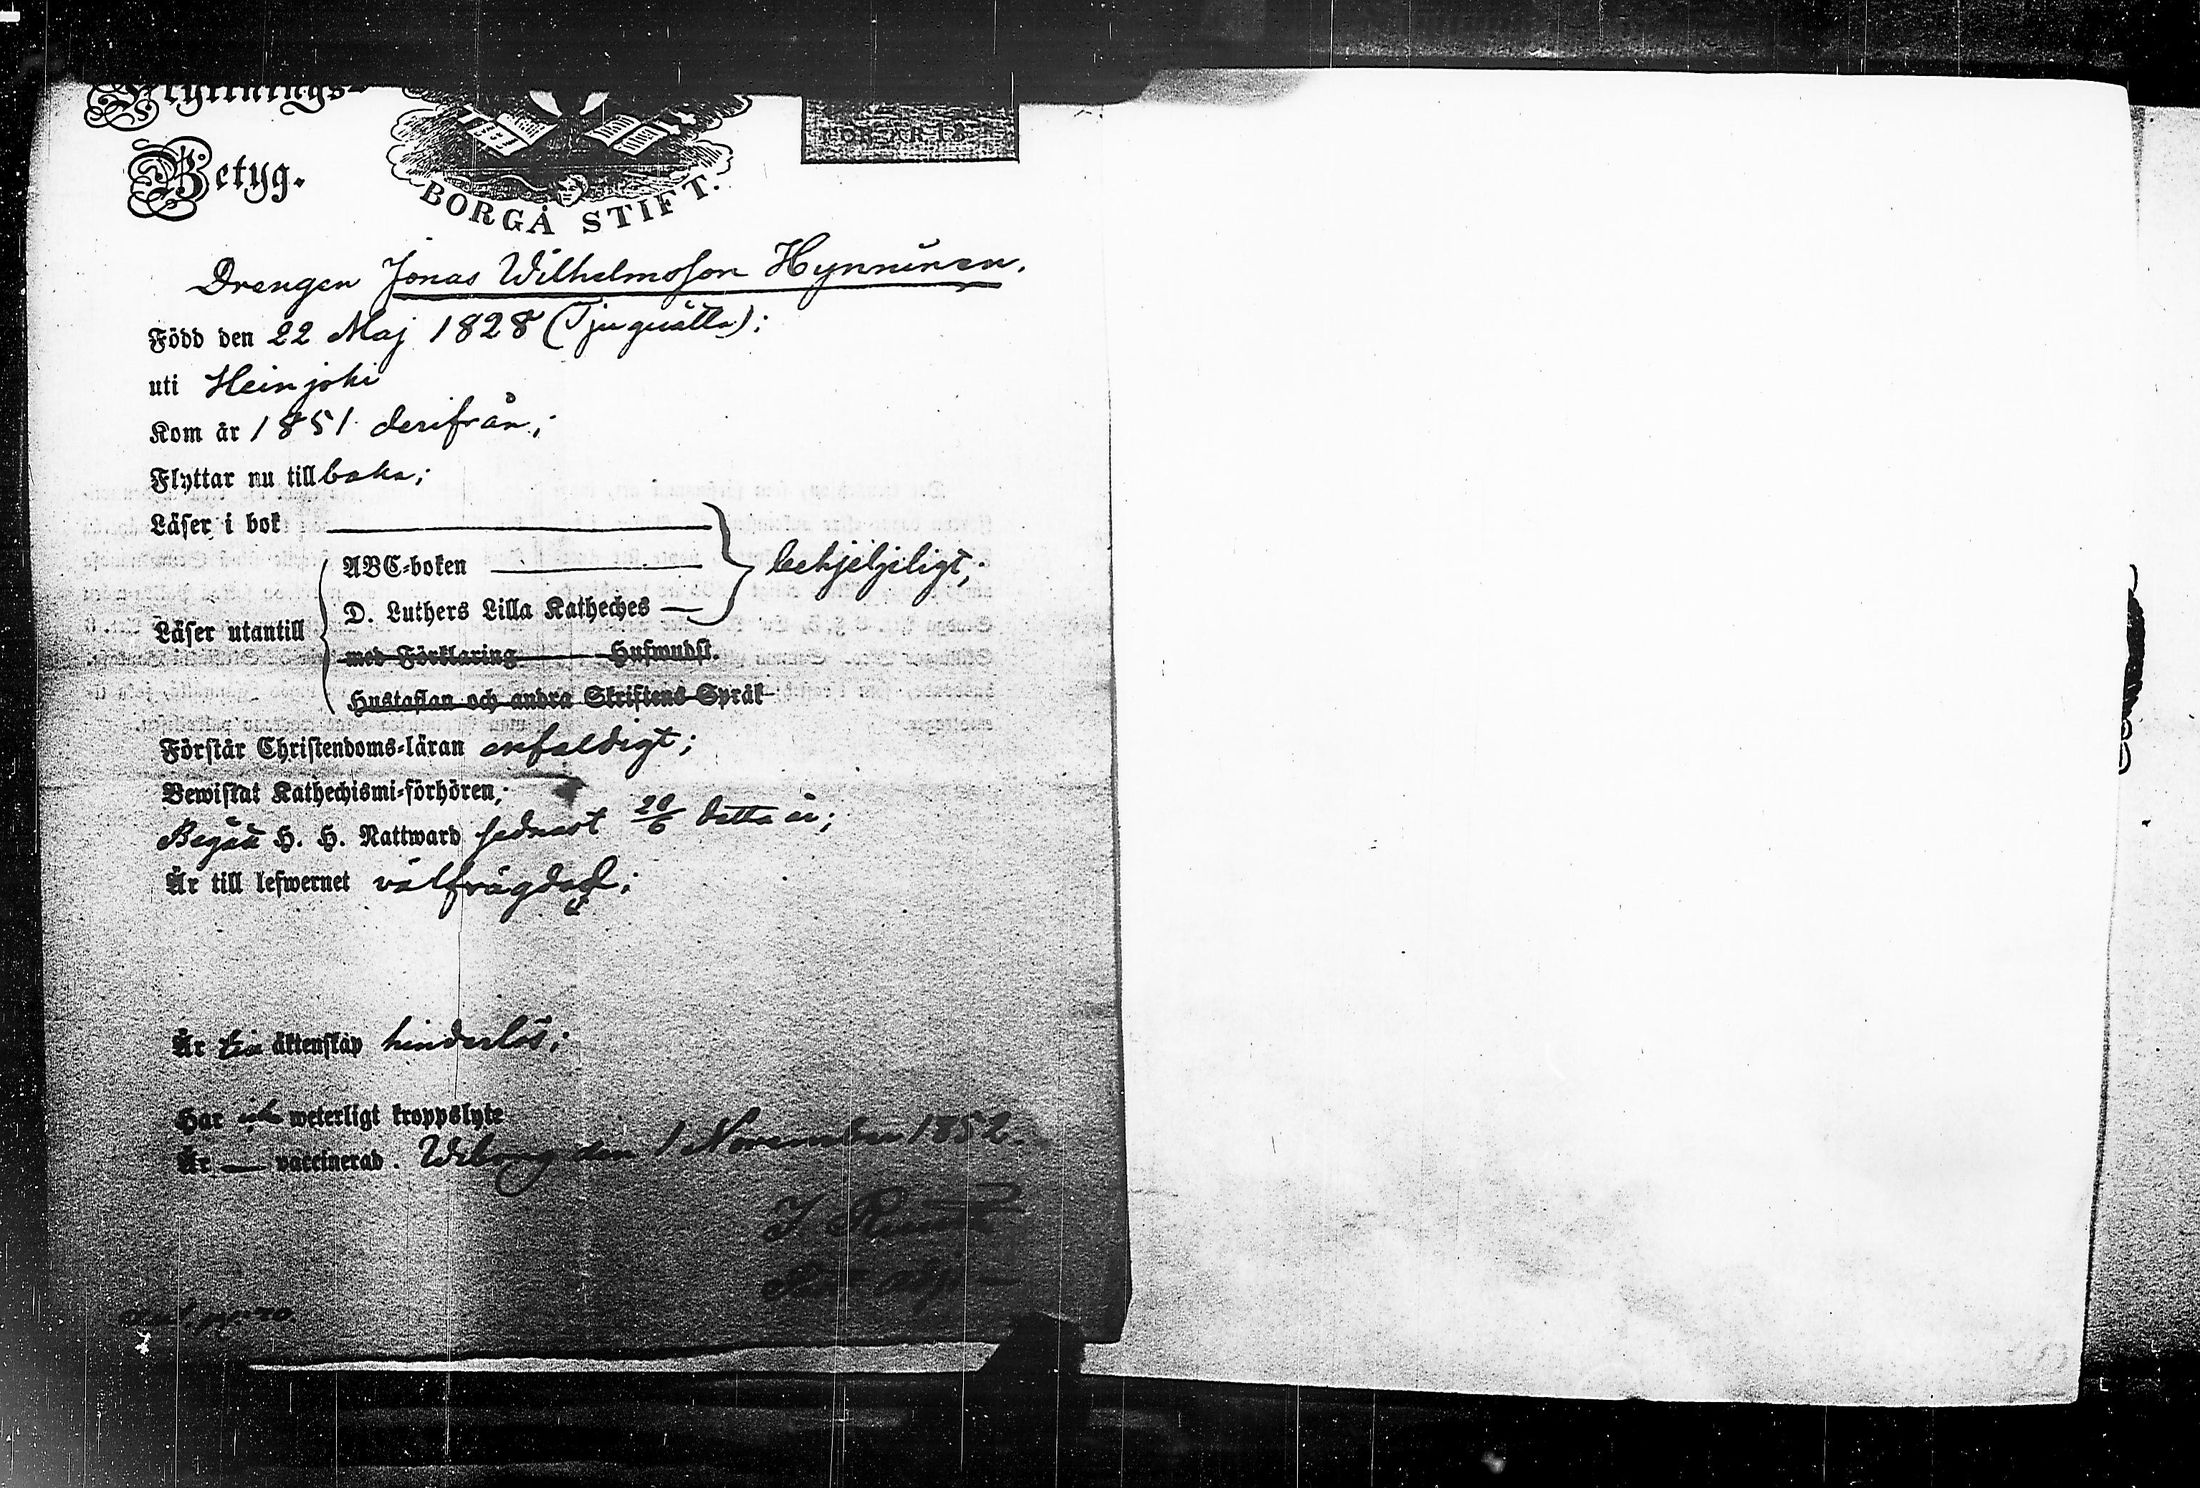 Flyttnings-
Betyg.
BORGÅ STIFT.
FÖR ÅR 18
Drengen Jonas Wilhelmsson Hynninen.
Född den 22 Maj 1828 (Tjuguåtta);
uti Heinjoki
Kom år 1851 derifrån;
Flyttar nu tillbaka;
Läser i bok
ABC-boken behjelpligt;
D. Luthers Lilla Katheches
Läser utantill
med Förklaring Huswudst.
Hustaflan och andra Skriftens Språk
Förstår Christendoms-läran enfaldigt;
Bewistat Kathechismi-förhören;
Begått H. H. Nattward sednast 20/6 detta år;
Är till lefwernet välfrägdad;
Är till äktenskap hinderlös;
Har icke weterligt kroppslyte
Är — vaccinerad. Wiborg den 1 November 1852.